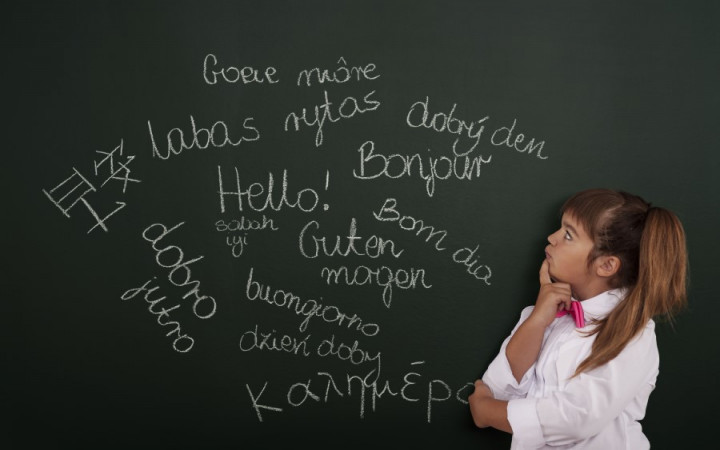 Goeie môre
labas rytas
dobrý den
Bonjour
Hello!
sabah
iyi
Bom dia
Guten
morgen
dobro
jutro
buongiorno
dzień dobry
Καλημέρα